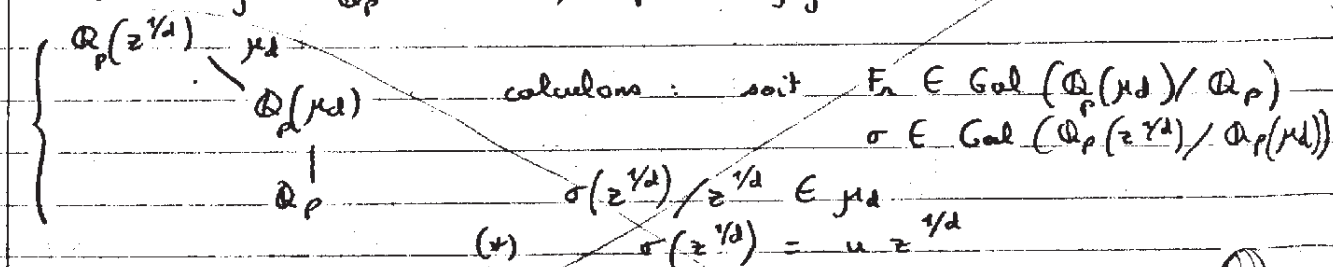 Q_p(z^{1/d}) μ_d
Q_p(μ_d) calculons : soit Fr ∈ Gal (Q_p(μd)/ Q_p)
σ ∈ Gal (Q_p(z^{1/d})/ Q_p(μd))
Q_p σ(z^{1/d})/z^{1/d} ∈ μ_d
(*) σ(z^{1/d}) = u z^{1/d}